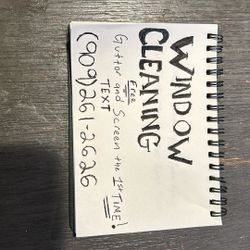 WINDOW
CLEANING
Free
Guttor and Screen the 1st TIME!
TEXT
(909)261-2626